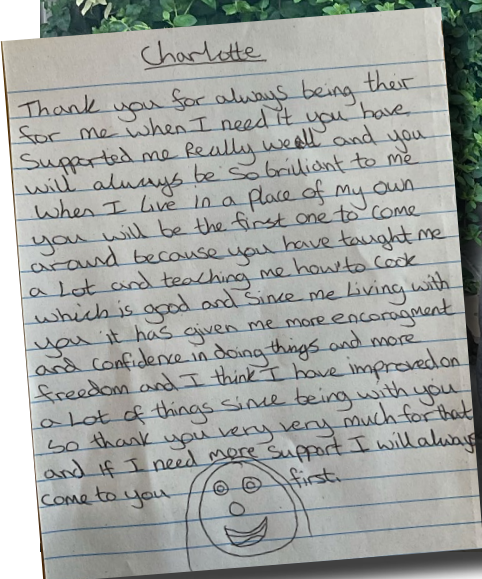 Charlotte
Thank you for always being their
for me when I need it you have
supported me really weell and you
will always be so briliant to me
when I live in a place of my own
you will be the first one to come
around because you have taught me
a lot and teaching me how to cook
which is good and since me living with
you it has given me more encoragment
and confidence in doing things and more
freedom and I think I have improved on
a lot of things since being with you
so thank you very very much for that
and if I need more support I will always
come to you first.